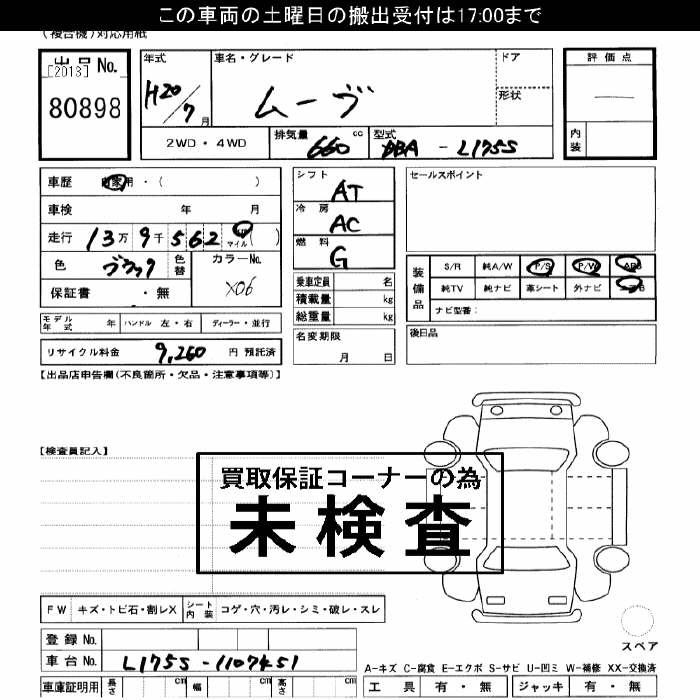 この車両の土曜日の搬出受付は17:00まで
(複合機)対応用紙
出品 No.
[2013]
80898
年式
H20/7月
車名・グレード
ムーヴ
ドア
形状
評価点
内装
2WD・4WD
排気量 660 cc
型式 DBA - L175S
車歴 自家用・( )
車検 年 月
走行 13万9千562 マイル( )
色 ブラック
色替
カラーNo.
X06
保証書 ・無
モデル年式 年
ハンドル 左・右
ディーラー・並行
リサイクル料金 9,260 円 預託済
シフト AT
冷房 AC
燃料 G
乗車定員 名
積載量 kg
総重量 kg
名変期限
月 日
セールスポイント
装備品
S/R 純A/W P/S P/W ABS
純TV 純ナビ 革シート 外ナビ
ナビ型番:
後日品
【出品店申告欄(不良箇所・欠品・注意事項等)】
【検査員記入】
買取保証コーナーの為
未検査
FW キズ・トビ石・割レX
シート内装 コゲ・穴・汚レ・シミ・破レ・スレ
登録 No.
車台 No. L175S-1107451
車庫証明用 長さ cm 幅 cm 高さ cm
スペア
A-キズ C-腐食 E-エクボ S-サビ U-凹ミ W-補修 XX-交換済
工具 有・無 ジャッキ 有・無